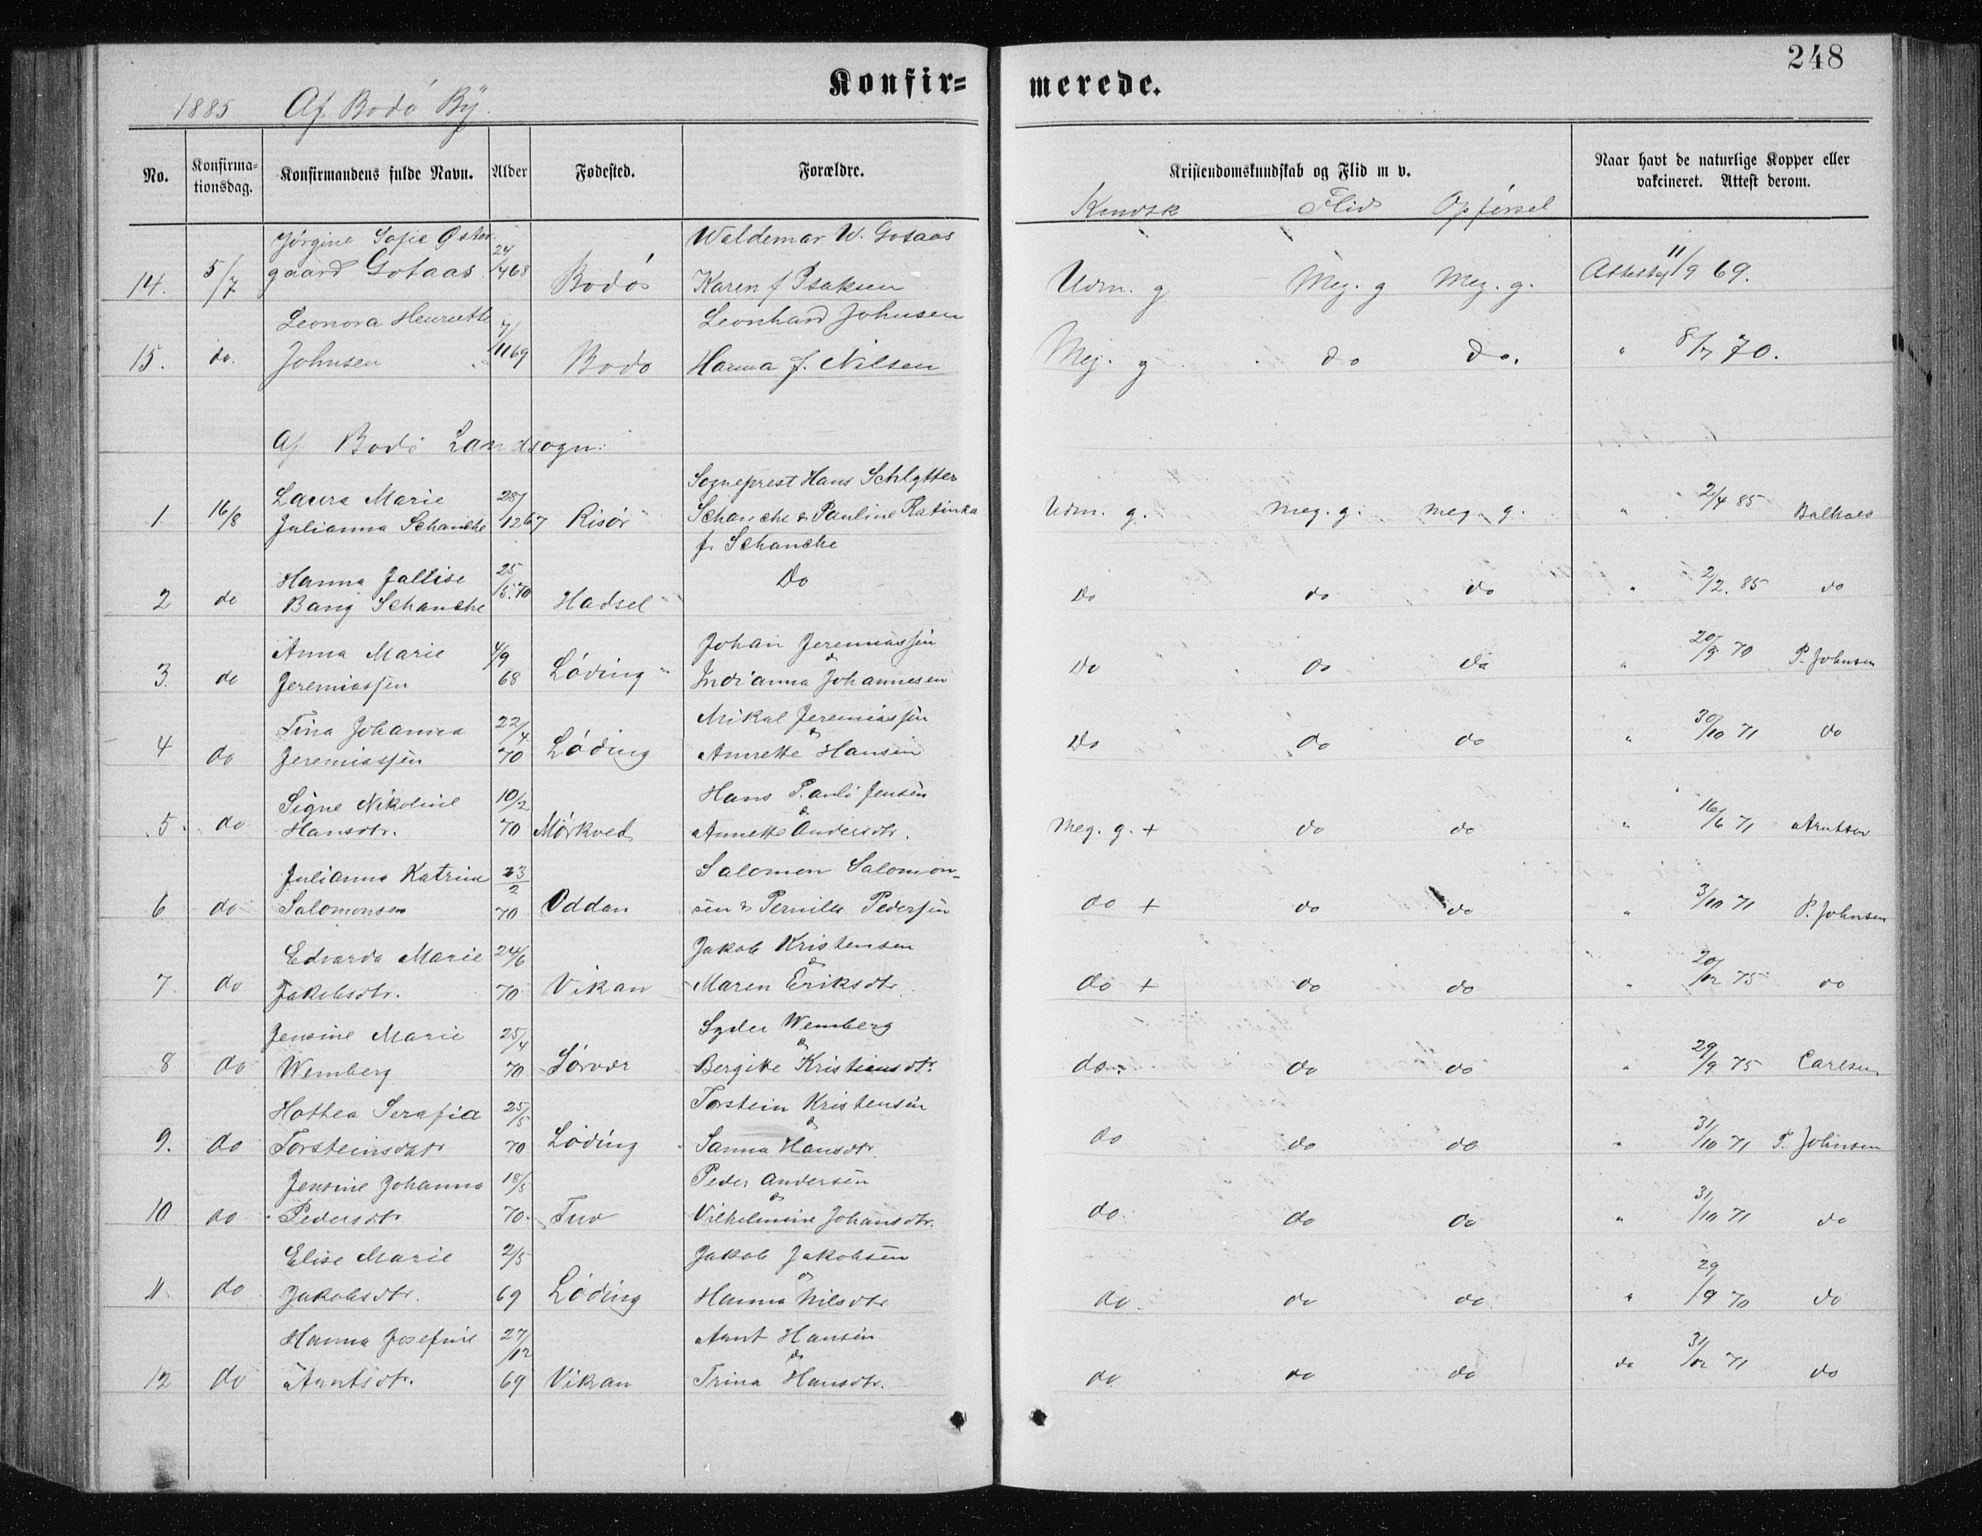 248
Konfir= merede.
1885 Af Bodö By.
No. Konfirma-tionsdag. Konfirmandens fulde Navn. Alder Fødested. Forældre. Kristendomskundskab og Flid m v. Naar havt de naturlige Kopper eller vakcineret. Attest derom.
Kundsk Flid Opförsel
Jörgine Sofie Øster- 24/ Waldemar W. Gotaas
14. 5/7 gaard Gotaas 468 Bodö Karen f Isaksen Udm. g Meg. g Meg. g. 11/9 69.
Leonora Henriette 7/ Leonhard Johnsen
15. do. Johnsen 1169 Bodö Hanna f. Nilsen Meg. g do do. " 8/7 70.
Af Bodö Landsogn:
Sogneprest Hans Schlytter
Laura Marie 28/
1 16/8 Julianna Schanche 1267 Risör Schanche & Pauline Katinka Udm. g. Meg. g. Meg. g. " 2/4 85
f. Schanche
Hanna 25 Do
2 do Bang Schanche /5.70 Hadsel Do do do " 2/2. 85 do
Anna Marie 4/9 Johan Jeremiassen
3. do Jeremiassen 68 Löding & Indianna Johannesen Do do do " 20/9 70 P. Johnsen
Tina Johanna 22/4 Mikal Jeremiassen
4 do Jeremiassen 70 Löding & Annette Hansen Do do do " 30/10 71 do
Signe Nikoline 10/2 Hans Pauli Jensen
5. do Hansdtr. 70 Mörkved & Annette Andersdtr. Meg. g. + do do " 16/6 71 Arntsen
Julianna Katrine 23/2 Salomon Salomon-
6 do Salomonsen 70 Oddan sen & Pernille Pedersen do + do do " 3/10 71 P. Johnsen
Edvarda Marie 24/6 Jakob Kristensen
7. do Jakobsdtr. 70 Vikan & Maren Eriksdtr do + do do " 20/12 75 do
Jensine Marie 25/4 Wemberg
8 do Wemberg 70 Sörvær & Bergitte Kristiensdtr. do do do " 29/9 75 Carlsen
Hattea Serafia 25/5 Torstein Kristensen
9. do Torsteinsdatr 70 Löding & Sanna Hansdtr do do do " 31/10 71 P. Johnsen
Jensine Johanna 18/5 Peder Andersen
10 do Pedersdtr 70. Tuv & Vilhelmine Johansdtr. do do do " 31/10 71 do
Elise Marie 2/5 Jakob Jakobsen
11 do Jakobsdtr. 69 Löding & Hanna Nilsdtr do do do " 29/9 70 do
Hanna Josefine 27/12 Arnt Hansen
12 do Arntsdtr. 69 Vikan & Trina Hansdtr. do do do do 31/12 71 do